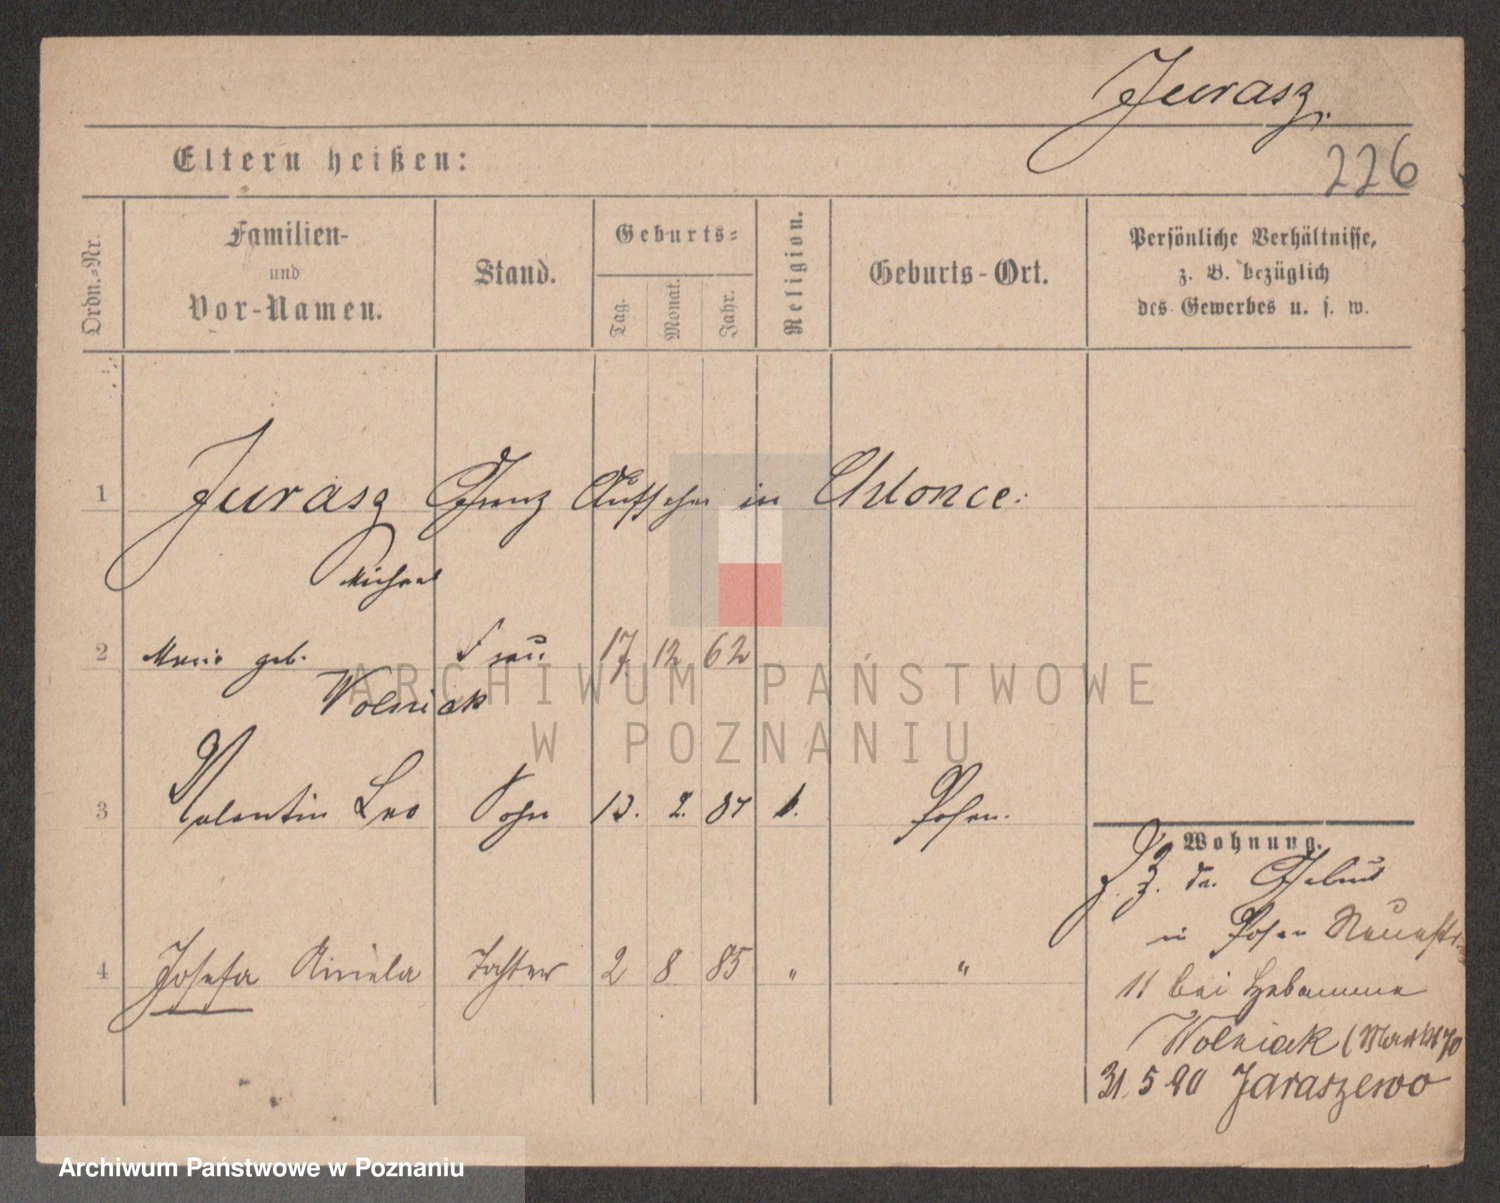 Jurasz.
Eltern heißen:
226
Ordn.-Nr.
Familien-
und
Vor-Namen.
Stand.
Geburts-
Tag.
Monat.
Jahr.
Religion.
Geburts-Ort.
Persönliche Verhältnisse,
z. B. bezüglich
des Gewerbes u. s. w.
1 Jurasz Grenz Aufseher in
Michael
2 Marie geb. Frau 17 12 62
Wolniak
3 Valentin Leo Sohn 13. 2. 87 k. Posen.
4 Josefa Tochter 2 8 85 " "
Wohnung.
z. Z. der Geburt
in Posen
11 bei Hebamme
Wolniak (Markt 70
31. 5 90 Jaraszewo
ARCHIWUM PAŃSTWOWE
W POZNANIU
Archiwum Państwowe w Poznaniu